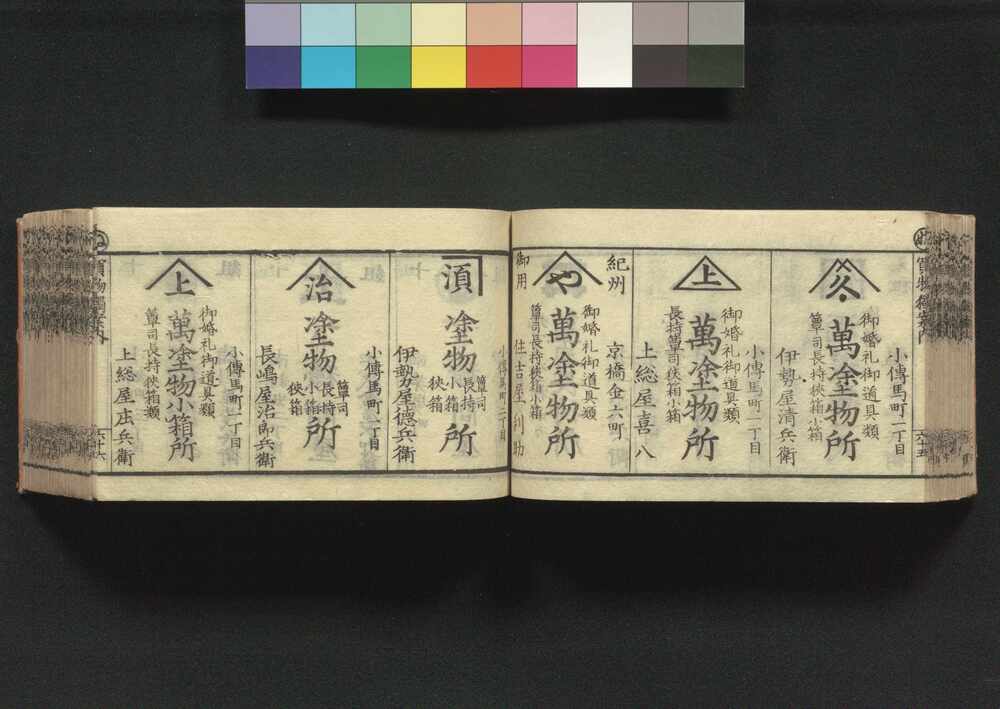 小傳馬町二丁目
御婚礼御道具類
久
萬塗物所
簞司長持挾箱小箱
伊勢屋清兵衛
小傳馬町二丁目
御婚礼御道具類
上
萬塗物所
長持簞司挾箱小箱
上総屋喜八
紀州
御用
京橋金六町
御婚礼御道具類
や
萬塗物所
簞司長持挾箱小箱
住吉屋利助
小傳馬町二丁目
須
塗物
簞司
長持
小箱
挾箱
所
伊勢屋德兵衛
小傳馬町二丁目
治
塗物
簞司
長持
小箱
挾箱
所
長嶋屋治郎兵衛
小傳馬町二丁目
御婚礼御道具類
上
萬塗物小箱所
簞司長持挾箱類
上総屋庄兵衛